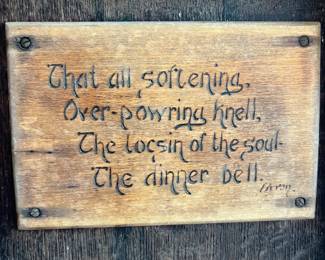 That all softening,
Over-powring knell,
The tocsin of the soul-
The dinner bell.
Byron.